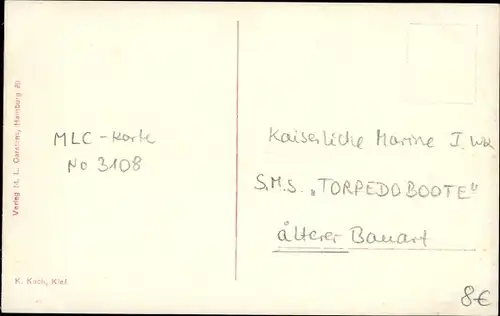 MLC-Karte
No 3108
Kaiserliche Marine I. WK
S.M.S. „TORPEDOBOOTE"
älterer Bauart
8€
Verlag M. L. Carstens, Hamburg
K. Koch, Kiel.